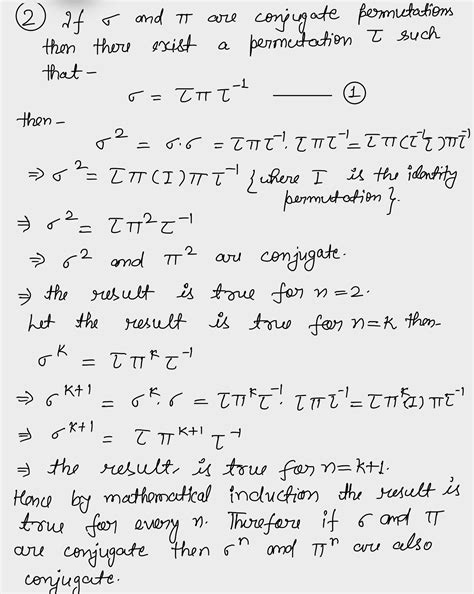 ② If σ and π are conjugate permutations
then there exist a permutation τ such
that –
σ = τπτ⁻¹ ——— ①
then –
σ² = σ·σ = τπτ⁻¹. τπτ⁻¹ = τπ(τ⁻¹τ)πτ⁻¹
⇒ σ² = τπ(I)πτ⁻¹ {where I is the identity
permutation}.
⇒ σ² = τπ²τ⁻¹
⇒ σ² and π² are conjugate.
⇒ the result is true for n=2.
Let the result is true for n=k then–
σᵏ = τπᵏτ⁻¹
⇒ σᵏ⁺¹ = σᵏ.σ = τπᵏτ⁻¹. τπτ⁻¹ = τπᵏ(I)πτ⁻¹
⇒ σᵏ⁺¹ = τπᵏ⁺¹τ⁻¹
⇒ the result is true for n=k+1.
Hence by mathematical induction the result is
true for every n. Therefore if σ and π
are conjugate then σⁿ and πⁿ are also
conjugate.